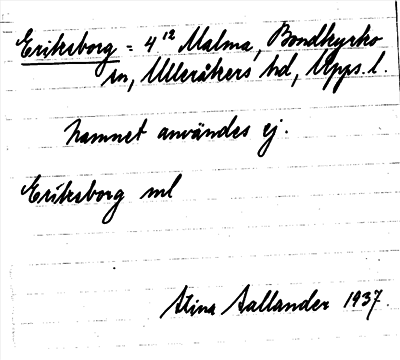 Eriksborg = 4¹² Malma, Bondkyrko
sn, Ulleråkers hd, Upps. l.
Namnet användes ej.
Eriksborg ml
Stina Aallander 1937.